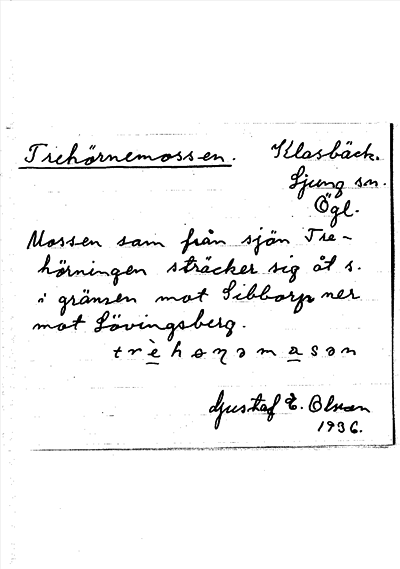 Trehörnemossen. Klasbäck.
Ljung sn.
Ögl.
Mossen som från sjön Tre-
hörningen sträcker sig åt s.
i gränsen mot Sibborp ner
mot Lövingsberg.
Gustaf E. Olsson
1936.